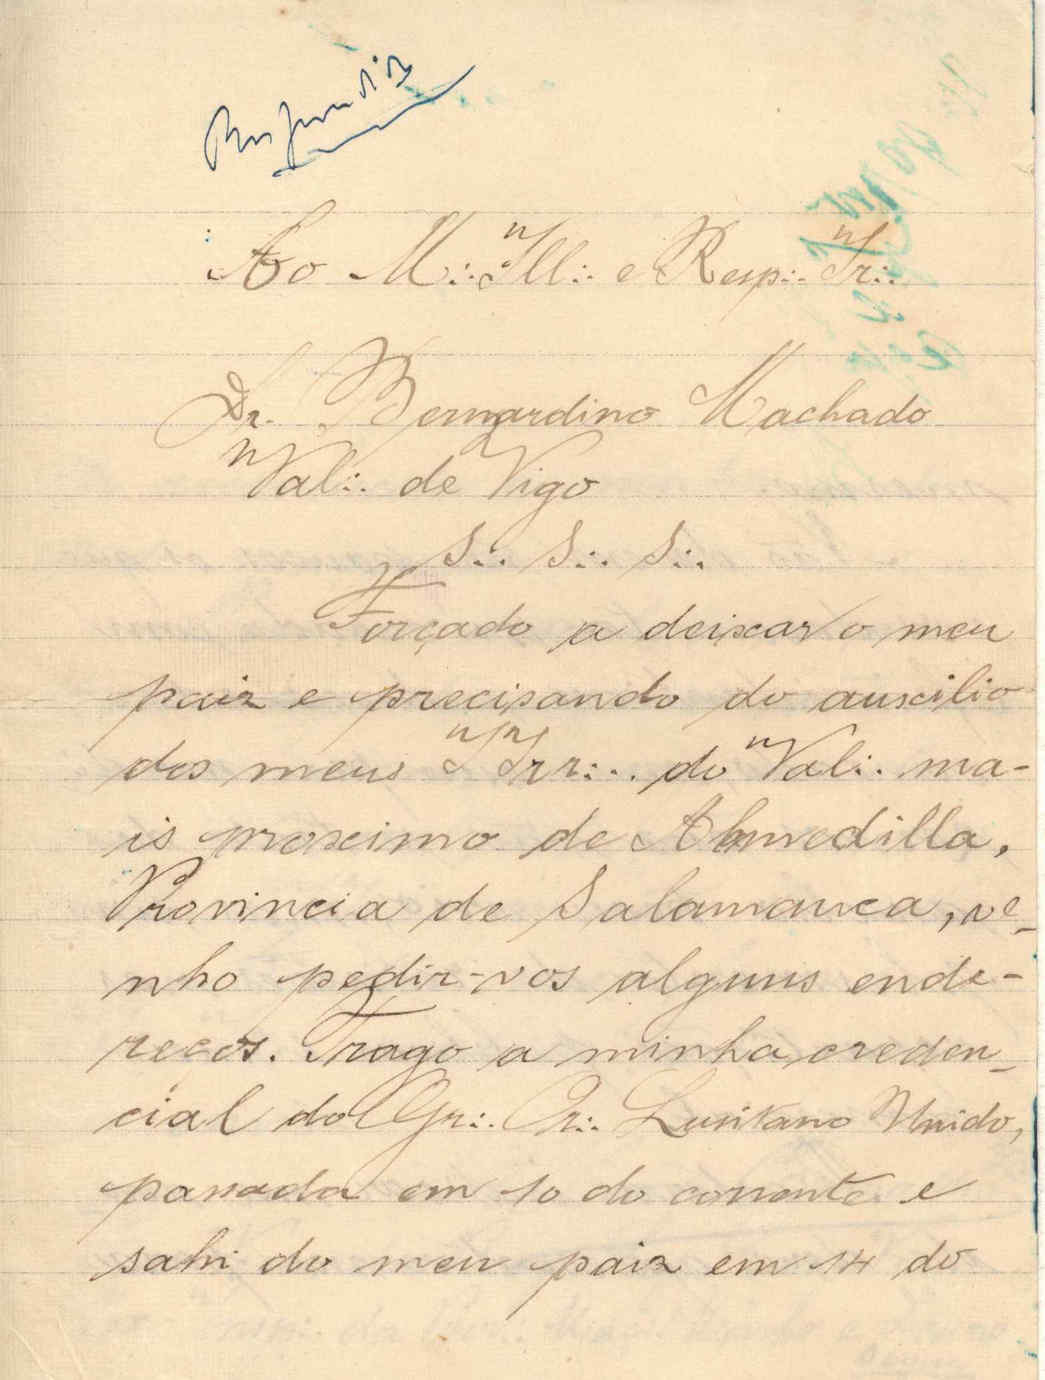 Respondida
Ao M∴ Ill∴ e Resp∴ Ir∴
Dr. Bernardino Machado
Val∴ de Vigo
S∴ S∴ S∴
Forçado a deixar o meu
paiz e precisando do auxilio
dos meus IIrr∴ do Val∴ ma-
is proximo de Almedilla,
Provincia de Salamanca, ve-
nho pedir-vos alguns ende-
reços. Trago a minha creden-
cial do Gr∴ Or∴ Lusitano Unido,
passada em 10 do corrente e
sahi do meu paiz em 14 do